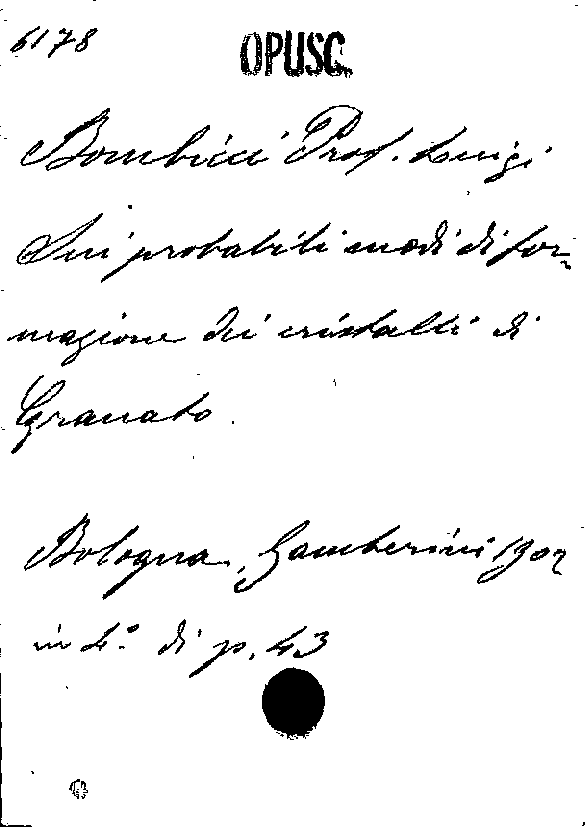 6178
OPUSC.
Bombicci Prof. Luigi
Sui probabili modi di for-
mazione dei cristalli di
Granato.
Bologna, Gamberini 1902
in 4.º di p. 43